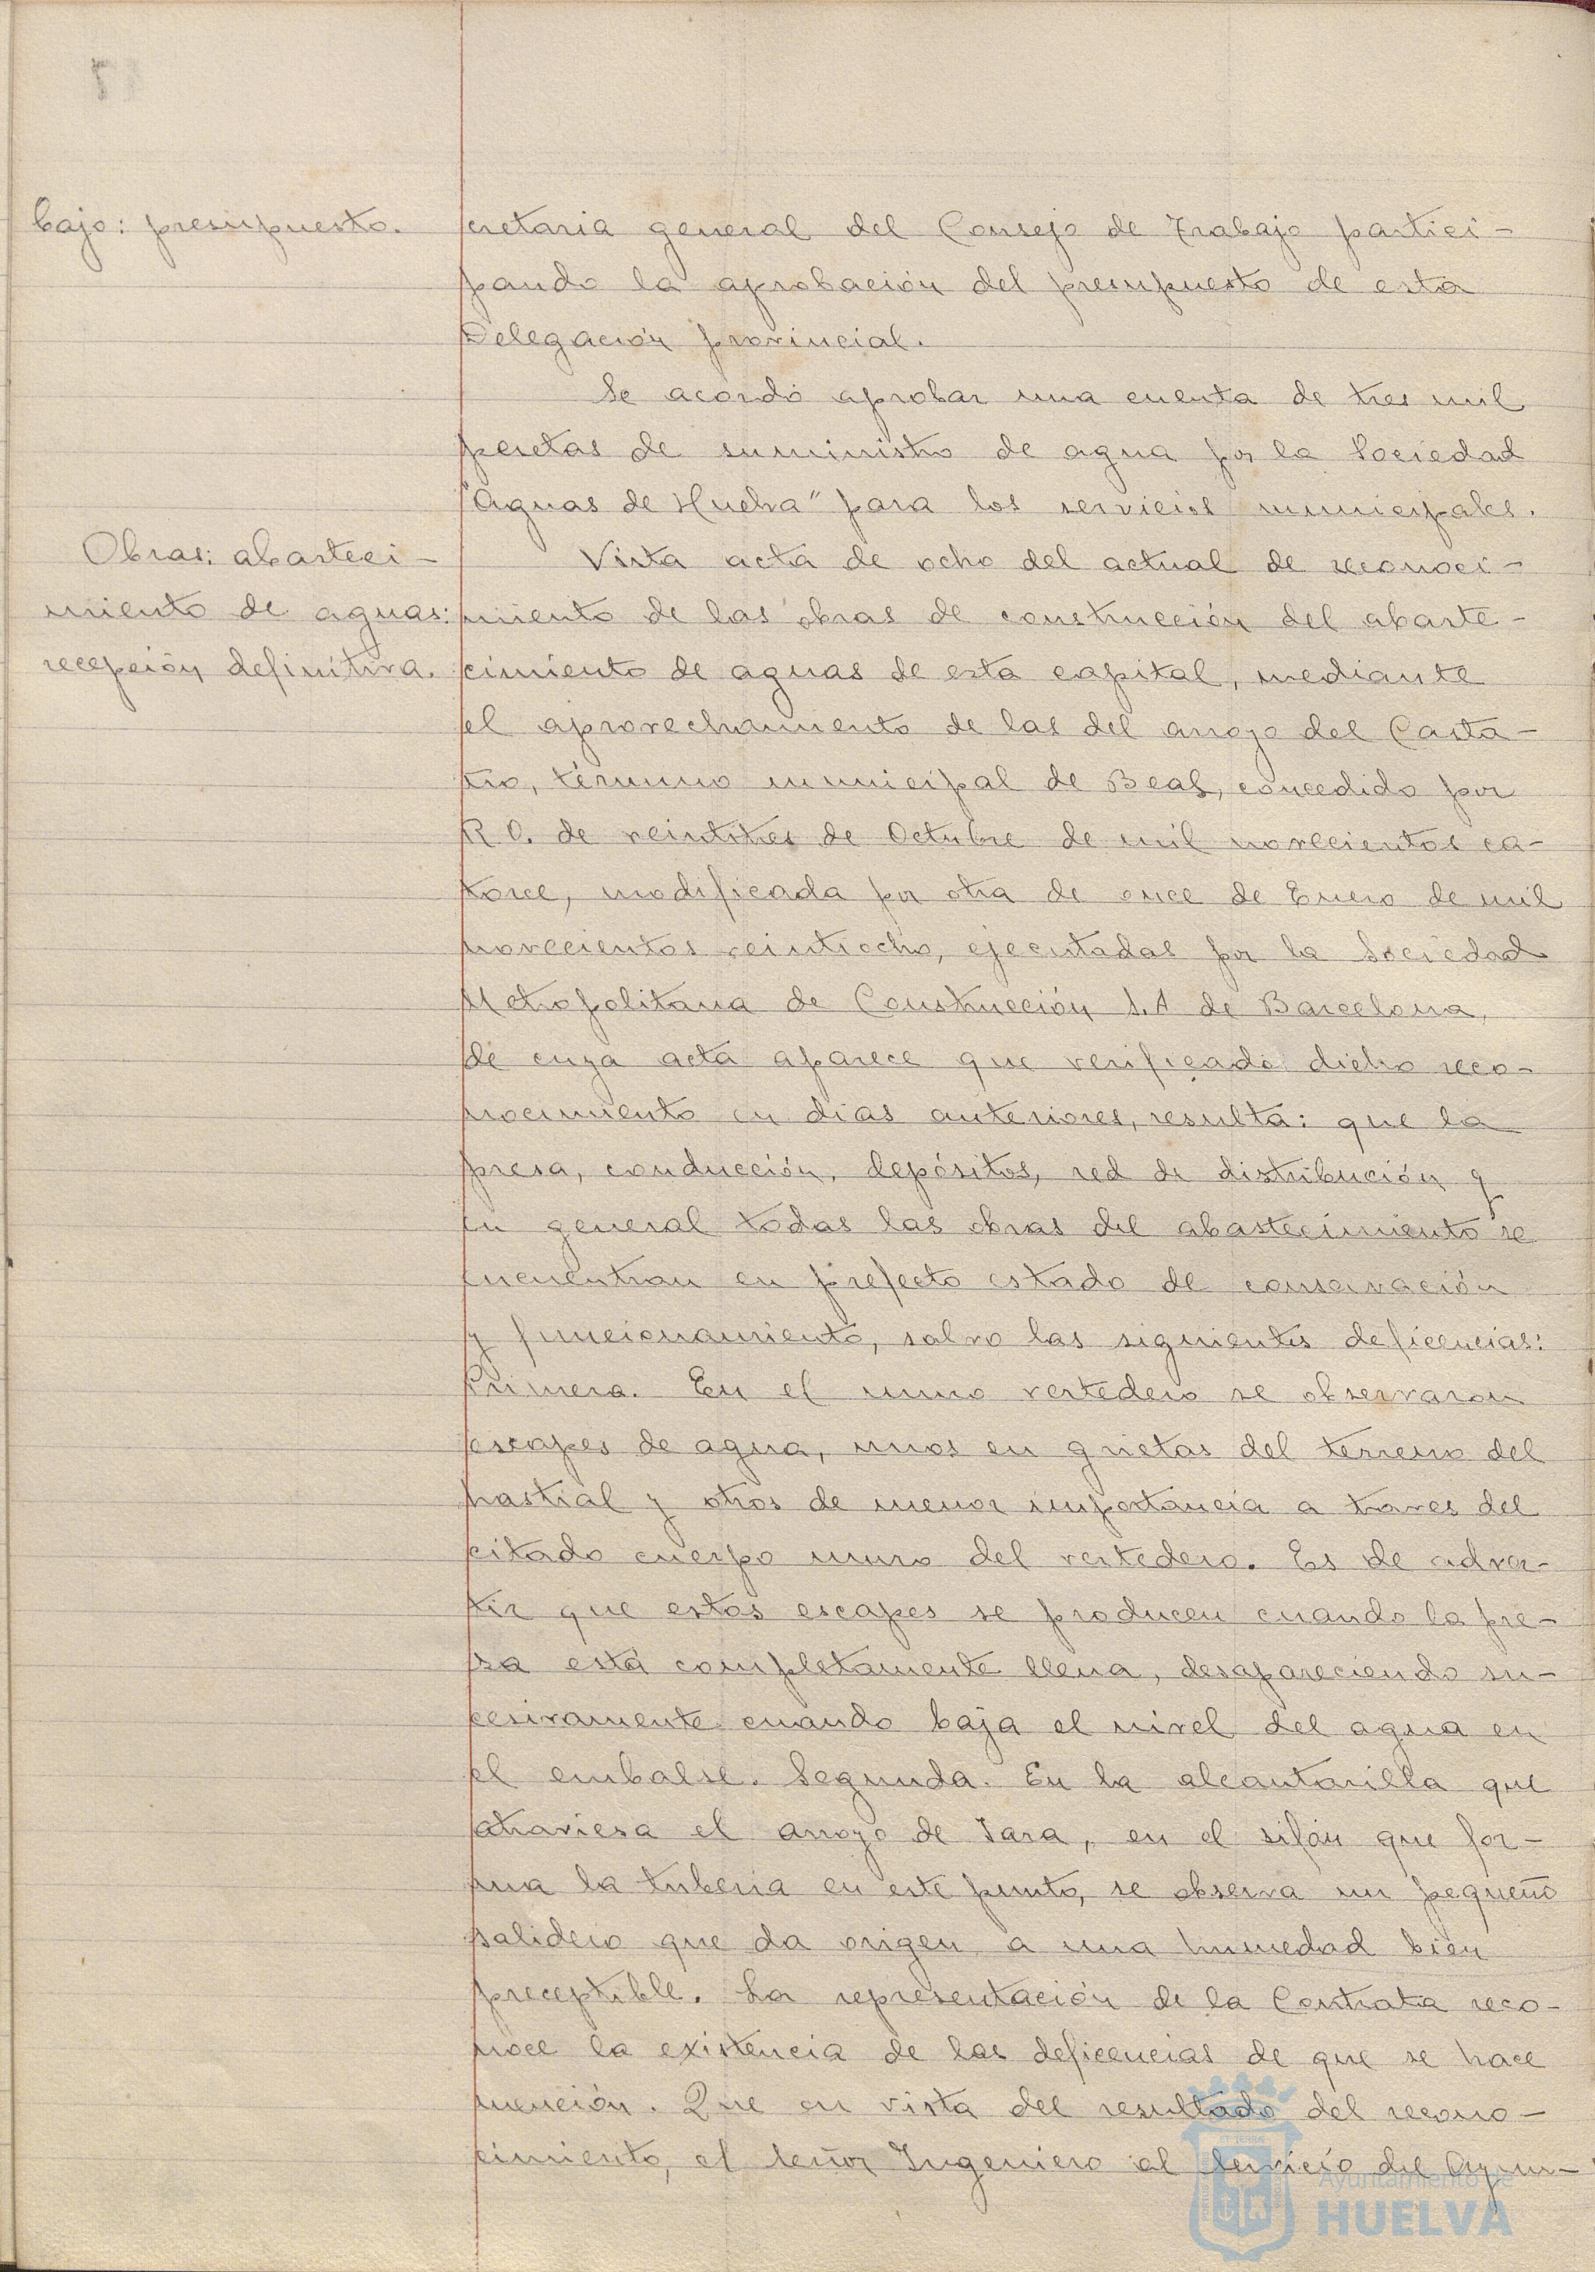 bajo: presupuesto.
cretaria general del Consejo de Trabajo partici-
pando la aprobación del presupuesto de esta
Delegación provincial.
Se acordó aprobar una cuenta de tres mil
pesetas de suministro de agua por la Sociedad
"Aguas de Huelva" para los servicios municipales.
Obras: abasteci-
miento de aguas:
recepción definitiva.
Vista acta de ocho del actual de reconoci-
miento de las obras de construcción del abaste-
cimiento de aguas de esta capital, mediante
el aprovechamiento de las del arroyo del Casta-
ño, término municipal de Beas, concedido por
R O. de veintitres de Octubre de mil novecientos ca-
torce, modificada por otra de once de Enero de mil
novecientos veintiocho, ejecutadas por la Sociedad
Metropolitana de Construcción S. A de Barcelona,
de cuya acta aparece que verificado dicho reco-
nocimiento en dias anteriores, resulta: que la
presa, conducción, depósitos, red de distribución y
en general todas las obras del abastecimiento se
encuentran en prefecto estado de conservación
y funcionamiento, salvo las siguientes deficencias:
Primera. En el muro vertedero se observaron
escapes de agua, unos en grietas del terreno del
hastial y otros de menor importancia a traves del
citado cuerpo muro del vertedero. Es de adver-
tir que estos escapes se producen cuando la pre-
sa está completamente llena, desapareciendo su-
cesivamente cuando baja el nivel del agua en
el embalse. Segunda. En la alcantarilla que
atraviesa el arroyo de Jara, en el sifón que for-
ma la tuberia en este punto, se observa un pequeño
salidero que da origen a una humedad bien
preceptible. La representación de la Contrata reco-
noce la existencia de las deficencias de que se hace
mención. Que en vista del resultado del recono-
cimiento, el señor Ingeniero al servicio del Ayun-
Ayuntamiento de
HUELVA